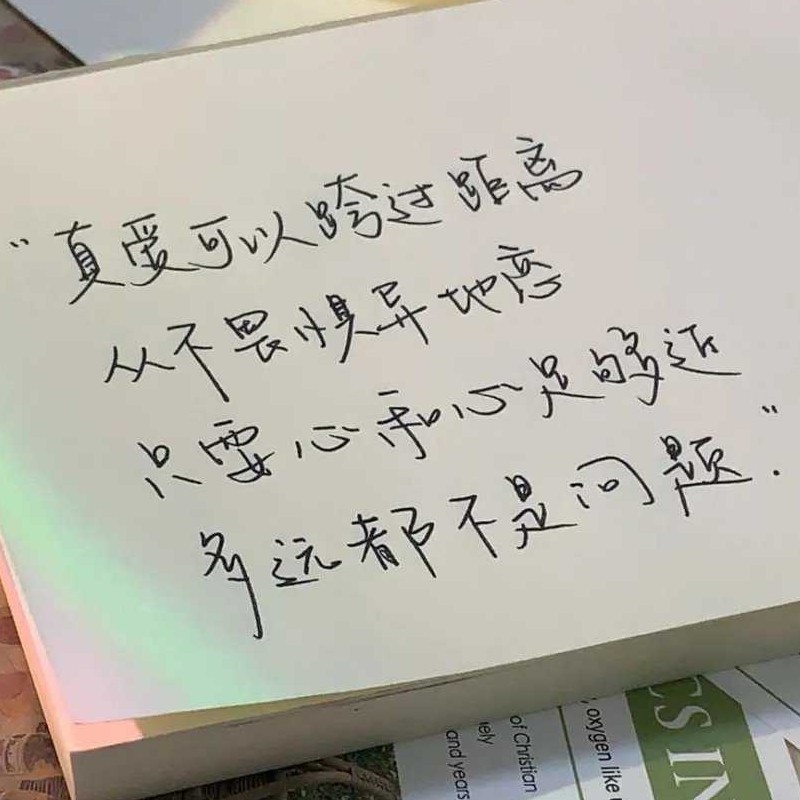 “真爱可以跨过距离
从不畏惧异地恋
只要心和心足够近
多远都不是问题.”
ES IN
, oxygen like
of Christian
ely
and years